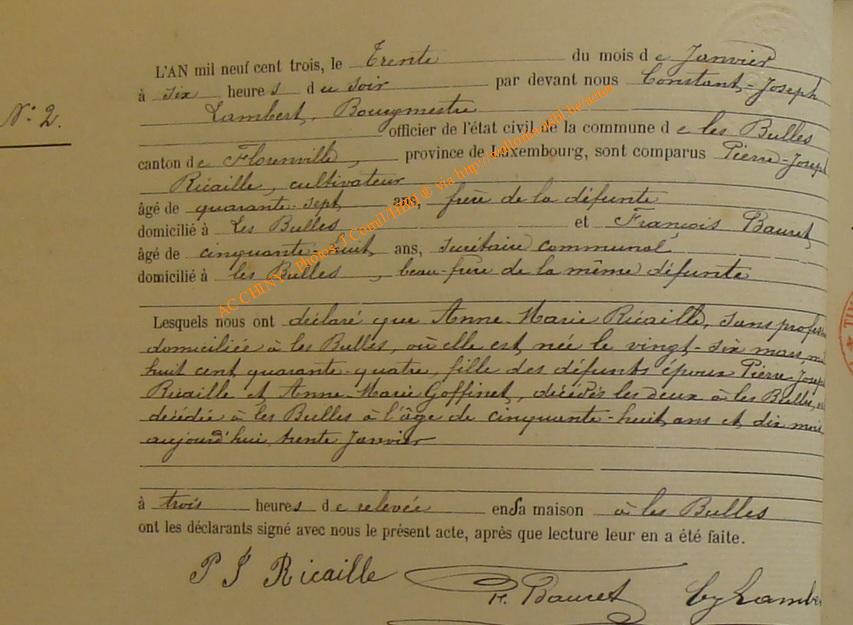 L'AN mil neuf cent trois, le Trente du mois de Janvier
à six heures du soir par devant nous Constant-Joseph
N° 2.
Lambert, Bourgmestre
officier de l'état civil de la commune de les Bulles
canton de Florenville, province de Luxembourg, sont comparus Pierre-Joseph
Ricaille, cultivateur
âgé de quarante-sept ans, frère de la défunte
domicilié à Les Bulles et François Bauret,
âgé de cinquante-huit ans, secrétaire communal,
domicilié à les Bulles, beau-frère de la même défunte
Lesquels nous ont déclaré que Anne-Marie Ricaille, sans profession
domiciliée à les Bulles, où elle est née le vingt-six mars, m
huit cent quarante-quatre, fille des défunts époux Pierre-Joseph
Ricaille et Anne-Marie Goffinet, décédés les deux à les Bulles, est
décédée à les Bulles à l'âge de cinquante-huit ans et dix mois
aujourd'hui, trente Janvier
à trois heures de relevée en sa maison à les Bulles
ont les déclarants signé avec nous le présent acte, après que lecture leur en a été faite.
P J Ricaille
F. Bauret
Lambe